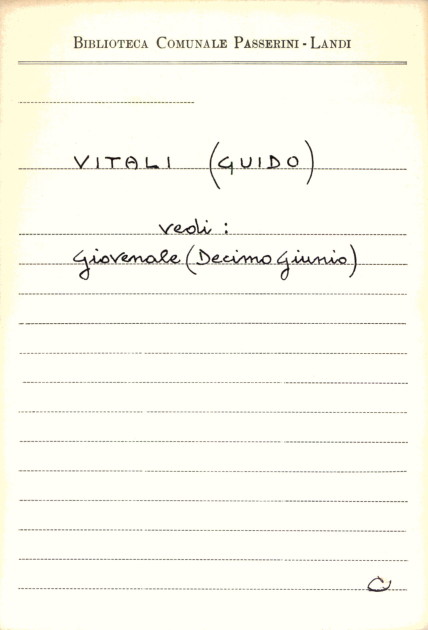 BIBLIOTECA COMUNALE PASSERINI - LANDI
VITALI (GUIDO)
vedi :
Giovenale (Decimo Giunio)